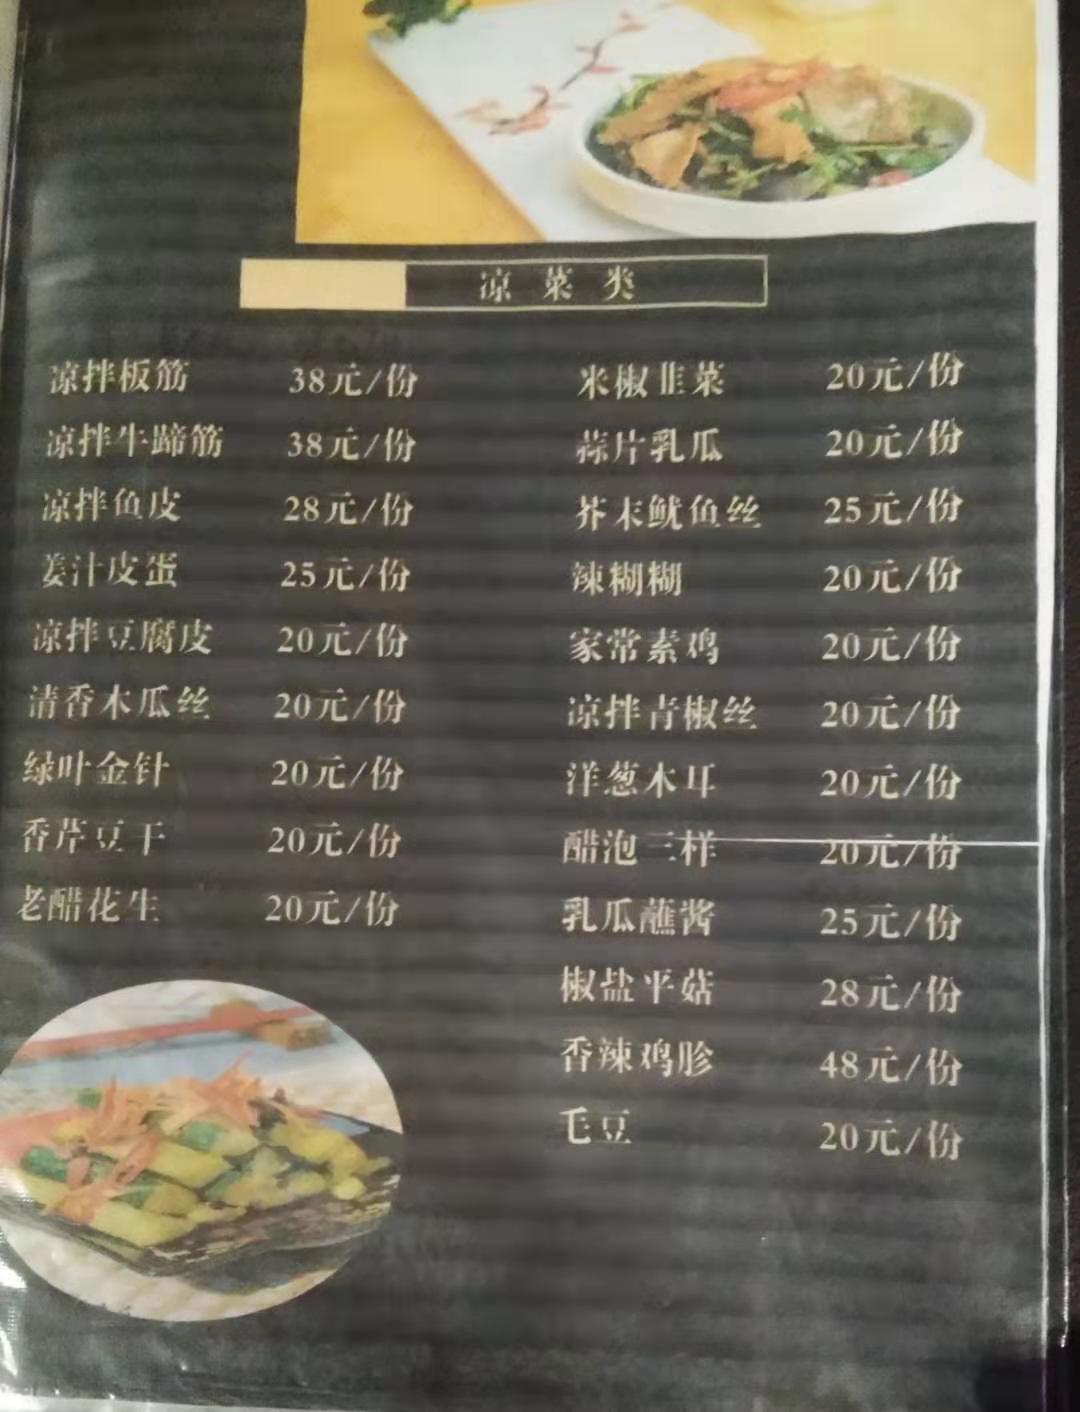 凉菜类
凉拌板筋 38元/份
凉拌牛蹄筋 38元/份
凉拌鱼皮 28元/份
姜汁皮蛋 25元/份
凉拌豆腐皮 20元/份
清香木瓜丝 20元/份
绿叶金针 20元/份
香芹豆干 20元/份
老醋花生 20元/份
米椒韭菜 20元/份
蒜片乳瓜 20元/份
芥末鱿鱼丝 25元/份
辣糊糊 20元/份
家常素鸡 20元/份
凉拌青椒丝 20元/份
洋葱木耳 20元/份
醋泡三样 20元/份
乳瓜蘸酱 25元/份
椒盐平菇 28元/份
香辣鸡胗 48元/份
毛豆 20元/份